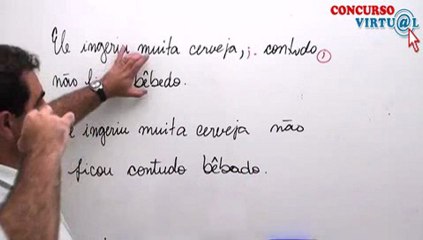 CONCURSO
VIRTU@L
Ele ingeriu muita cerveja,;. contudo,
não bêbedo.
ingeriu muita cerveja não
ficou contudo bêbado.